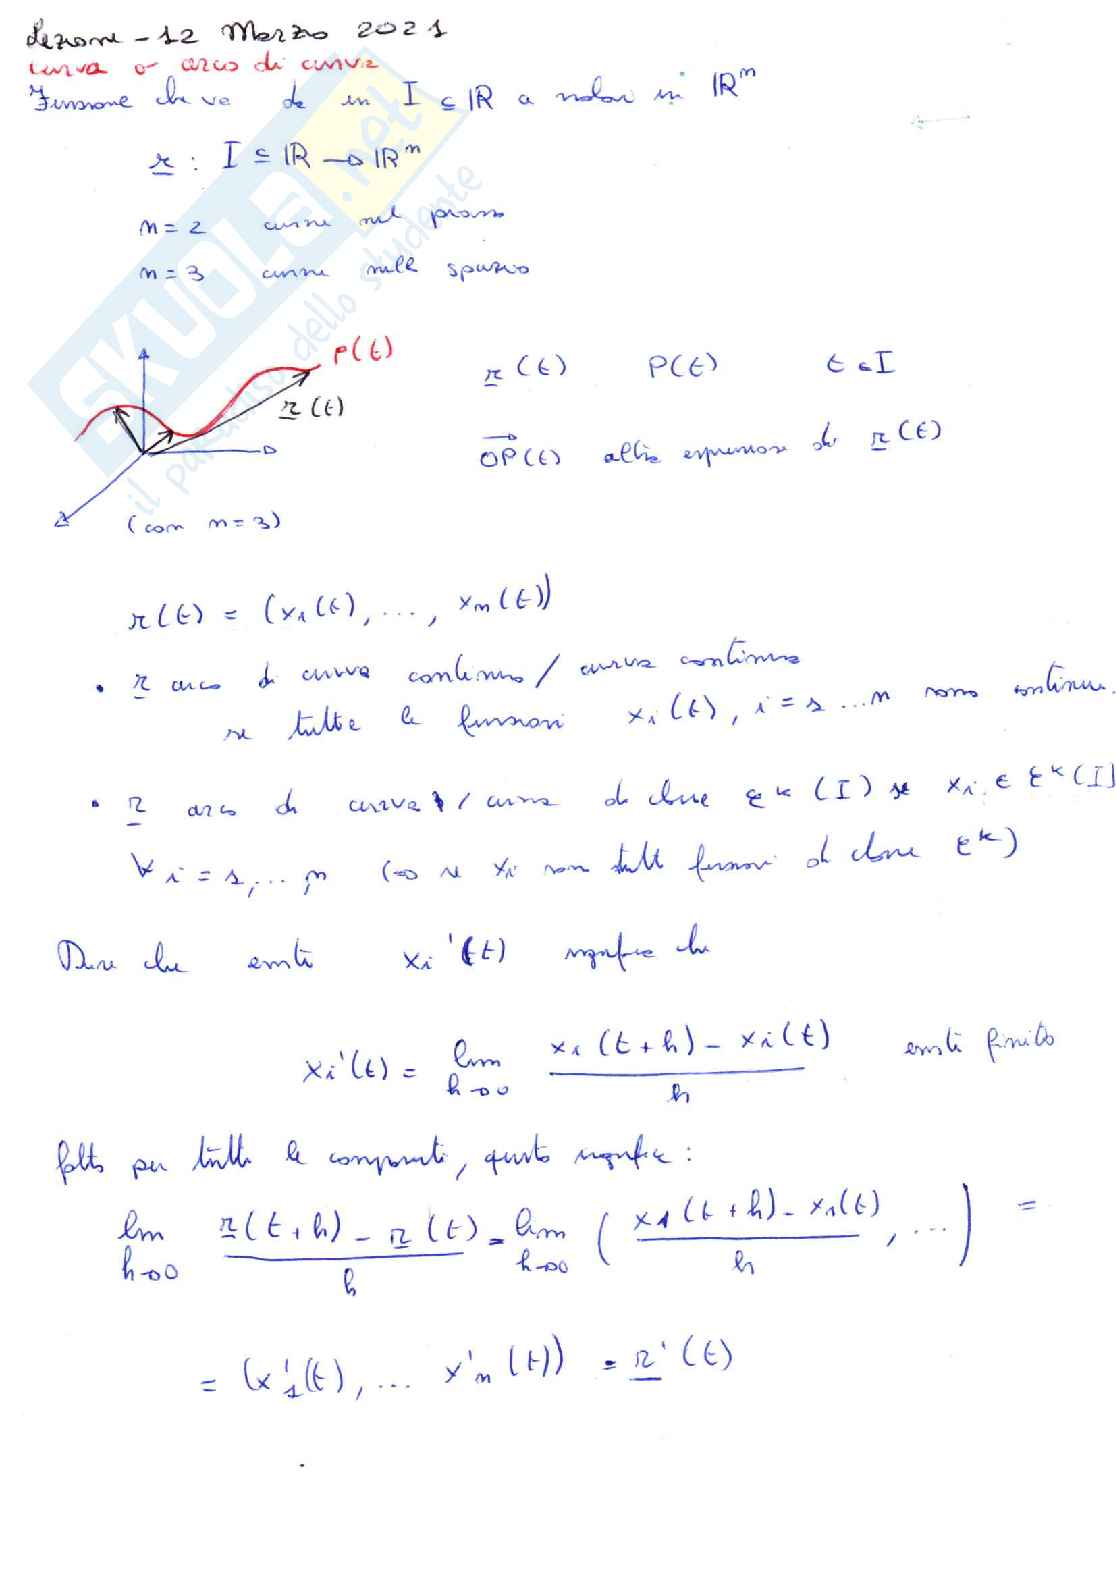 Lezione - 12 Marzo 2021
curva o arco di curva
Funzione che va da in I ⊆ ℝ a valori in ℝⁿ
r : I ⊆ ℝ → ℝⁿ
n = 2 curve nel piano
n = 3 curve nello spazio
P(t)
r(t)
r(t) P(t) t ∈ I
OP(t) altra espressione di r(t)
(con n = 3)
r(t) = (x₁(t), ..., xₙ(t))
• r arco di curva continuo / curva continua
se tutte le funzioni xᵢ(t), i = 1 ... n sono continue.
• r arco di curva / curva di classe C^k (I) se xᵢ ∈ C^k (I)
∀ i = 1, ..., n (→ se xᵢ son tutte funzioni di classe C^k)
Dire che esiste xᵢ'(t) significa che
xᵢ'(t) = lim h→0 (xᵢ(t+h) - xᵢ(t)) / h esiste finito
fatto per tutte le componenti, questo significa:
lim h→0 (r(t+h) - r(t)) / h = lim h→0 ( (x₁(t+h) - x₁(t)) / h , ... ) =
= (x'₁(t), ... x'ₙ(t)) = r'(t)
SKUOLA.net
il paradiso dello studente